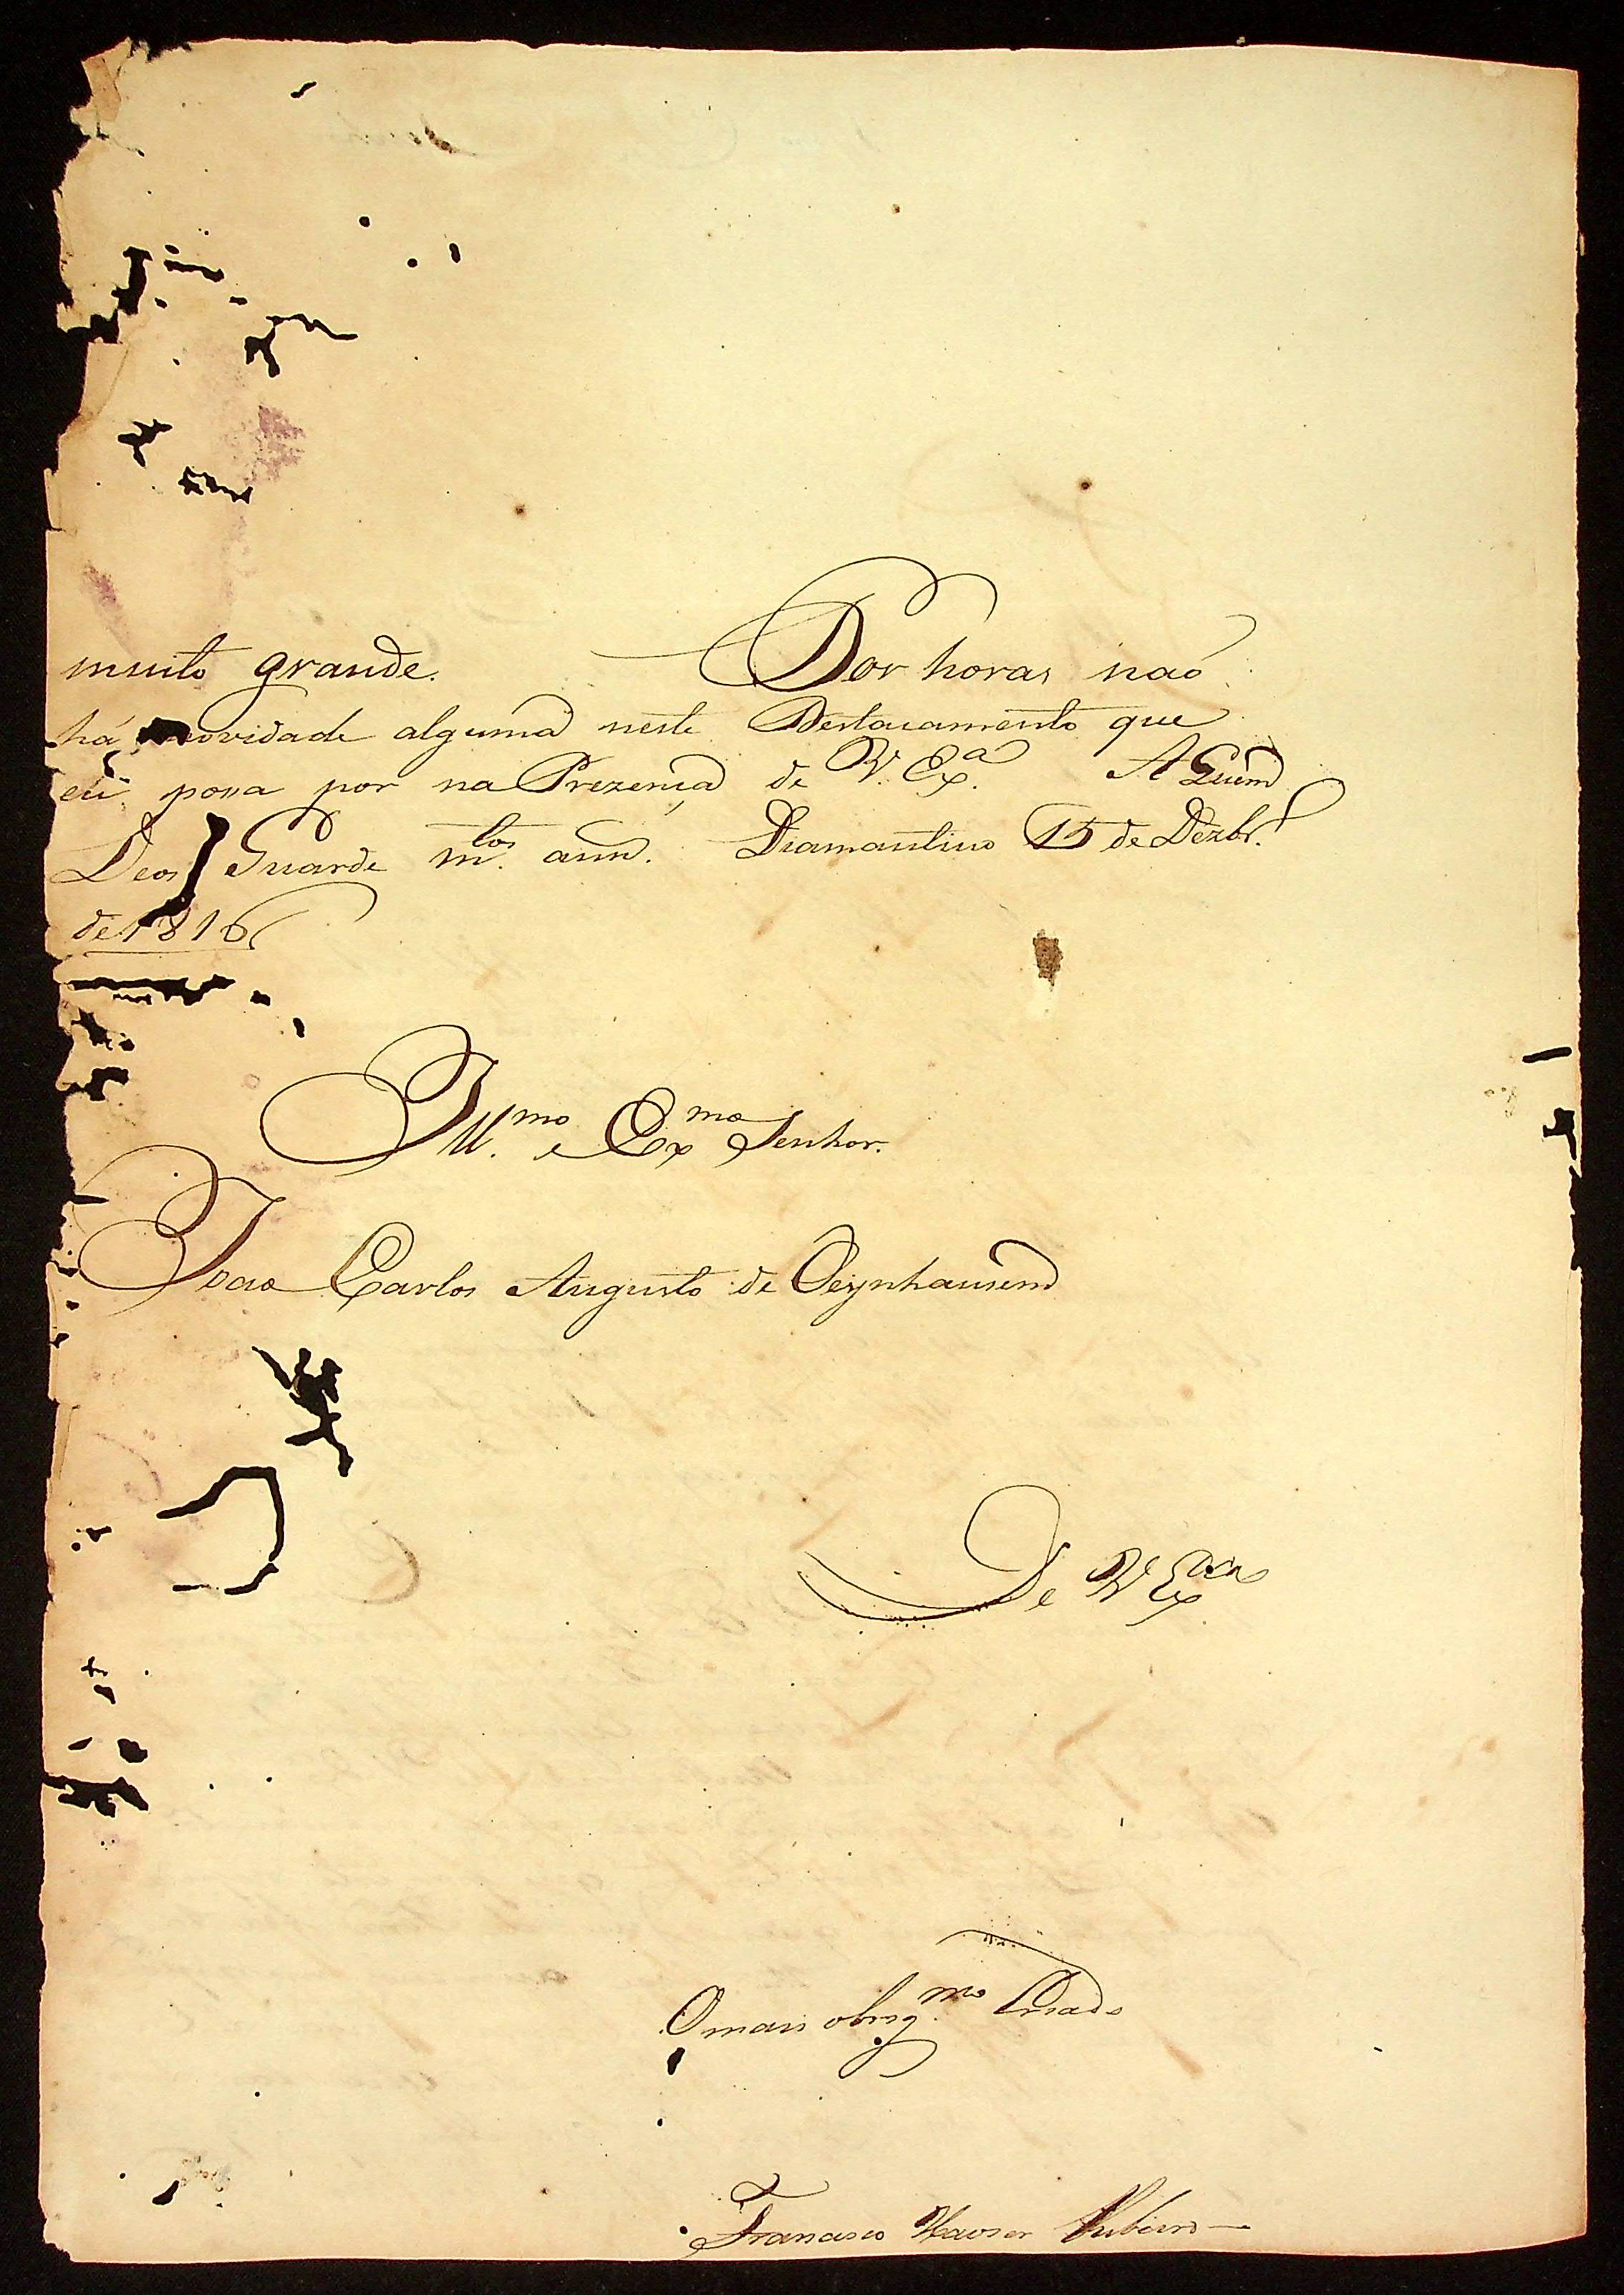 muito grande. Por horas não
há novidade alguma neste Destacamento que
eu possa por na Prezença de V. Ex.ª A Quem
Deos Guarde m.tos ann. Diamantino 15 de Dezbr.º
de 1816
Ill.mo e Ex.mo Senhor.
Joao Carlos Augusto de Oeynhausen
De V Ex.cia
O mais obrig.mo Criado
Francisco Xavier Ribeiro